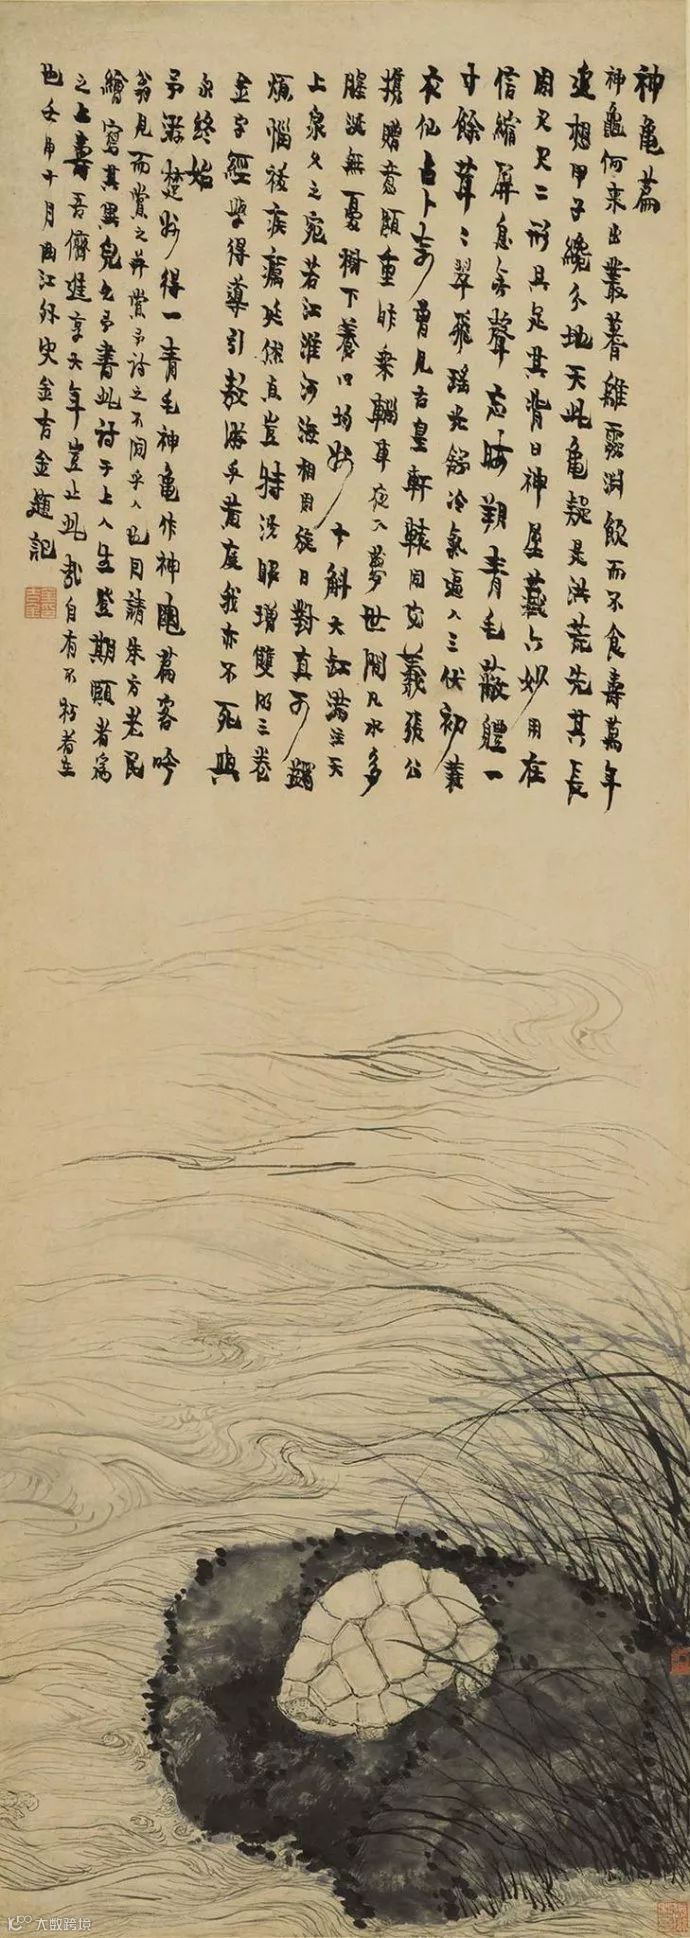 神龜篇
神龜何來出叢蓍離靈淵飲而不食壽萬年
遠想甲子纔分地天此龜疑是洪荒先其長
周尺尺二形具足其背曰神屋藏六妙用在
信縮屏息無聲忘晦朔青毛蔽體一
寸餘茸〻翠飛瑤光舒冷氣逼人三伏初蓑
衣仙占卜吉曾見古皇軒轅同宓羲張公
攜贈意頗重昨乘輜車夜入夢世間凡水多
腥涎無憂樹下養斛大缸滿注天
上泉久之宛若江淮河海相周旋日對真可蠲
煩惱祓疾癘延保真豈特洗眼增雙明三卷
金字經學得導引敖游乎黃庭我亦不死與
永終始
予游楚州得一青毛神龜作神龜篇客吟
翁見而賞之并賞予詩之不同乎人也因請朱方老民
繪寫其異皃也予書此詩于上人生登期頤者為
之上壽吾儕進享大年豈止此哉自有不朽者在
也壬申十月曲江外史金吉金題記
大数跨境